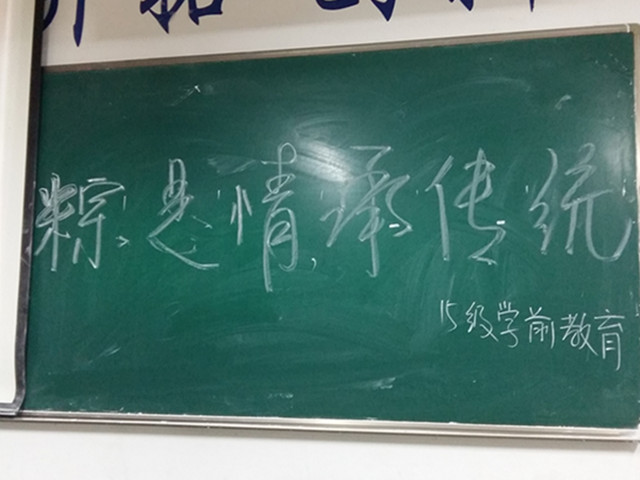 粽是情 承传统
15级学前教育